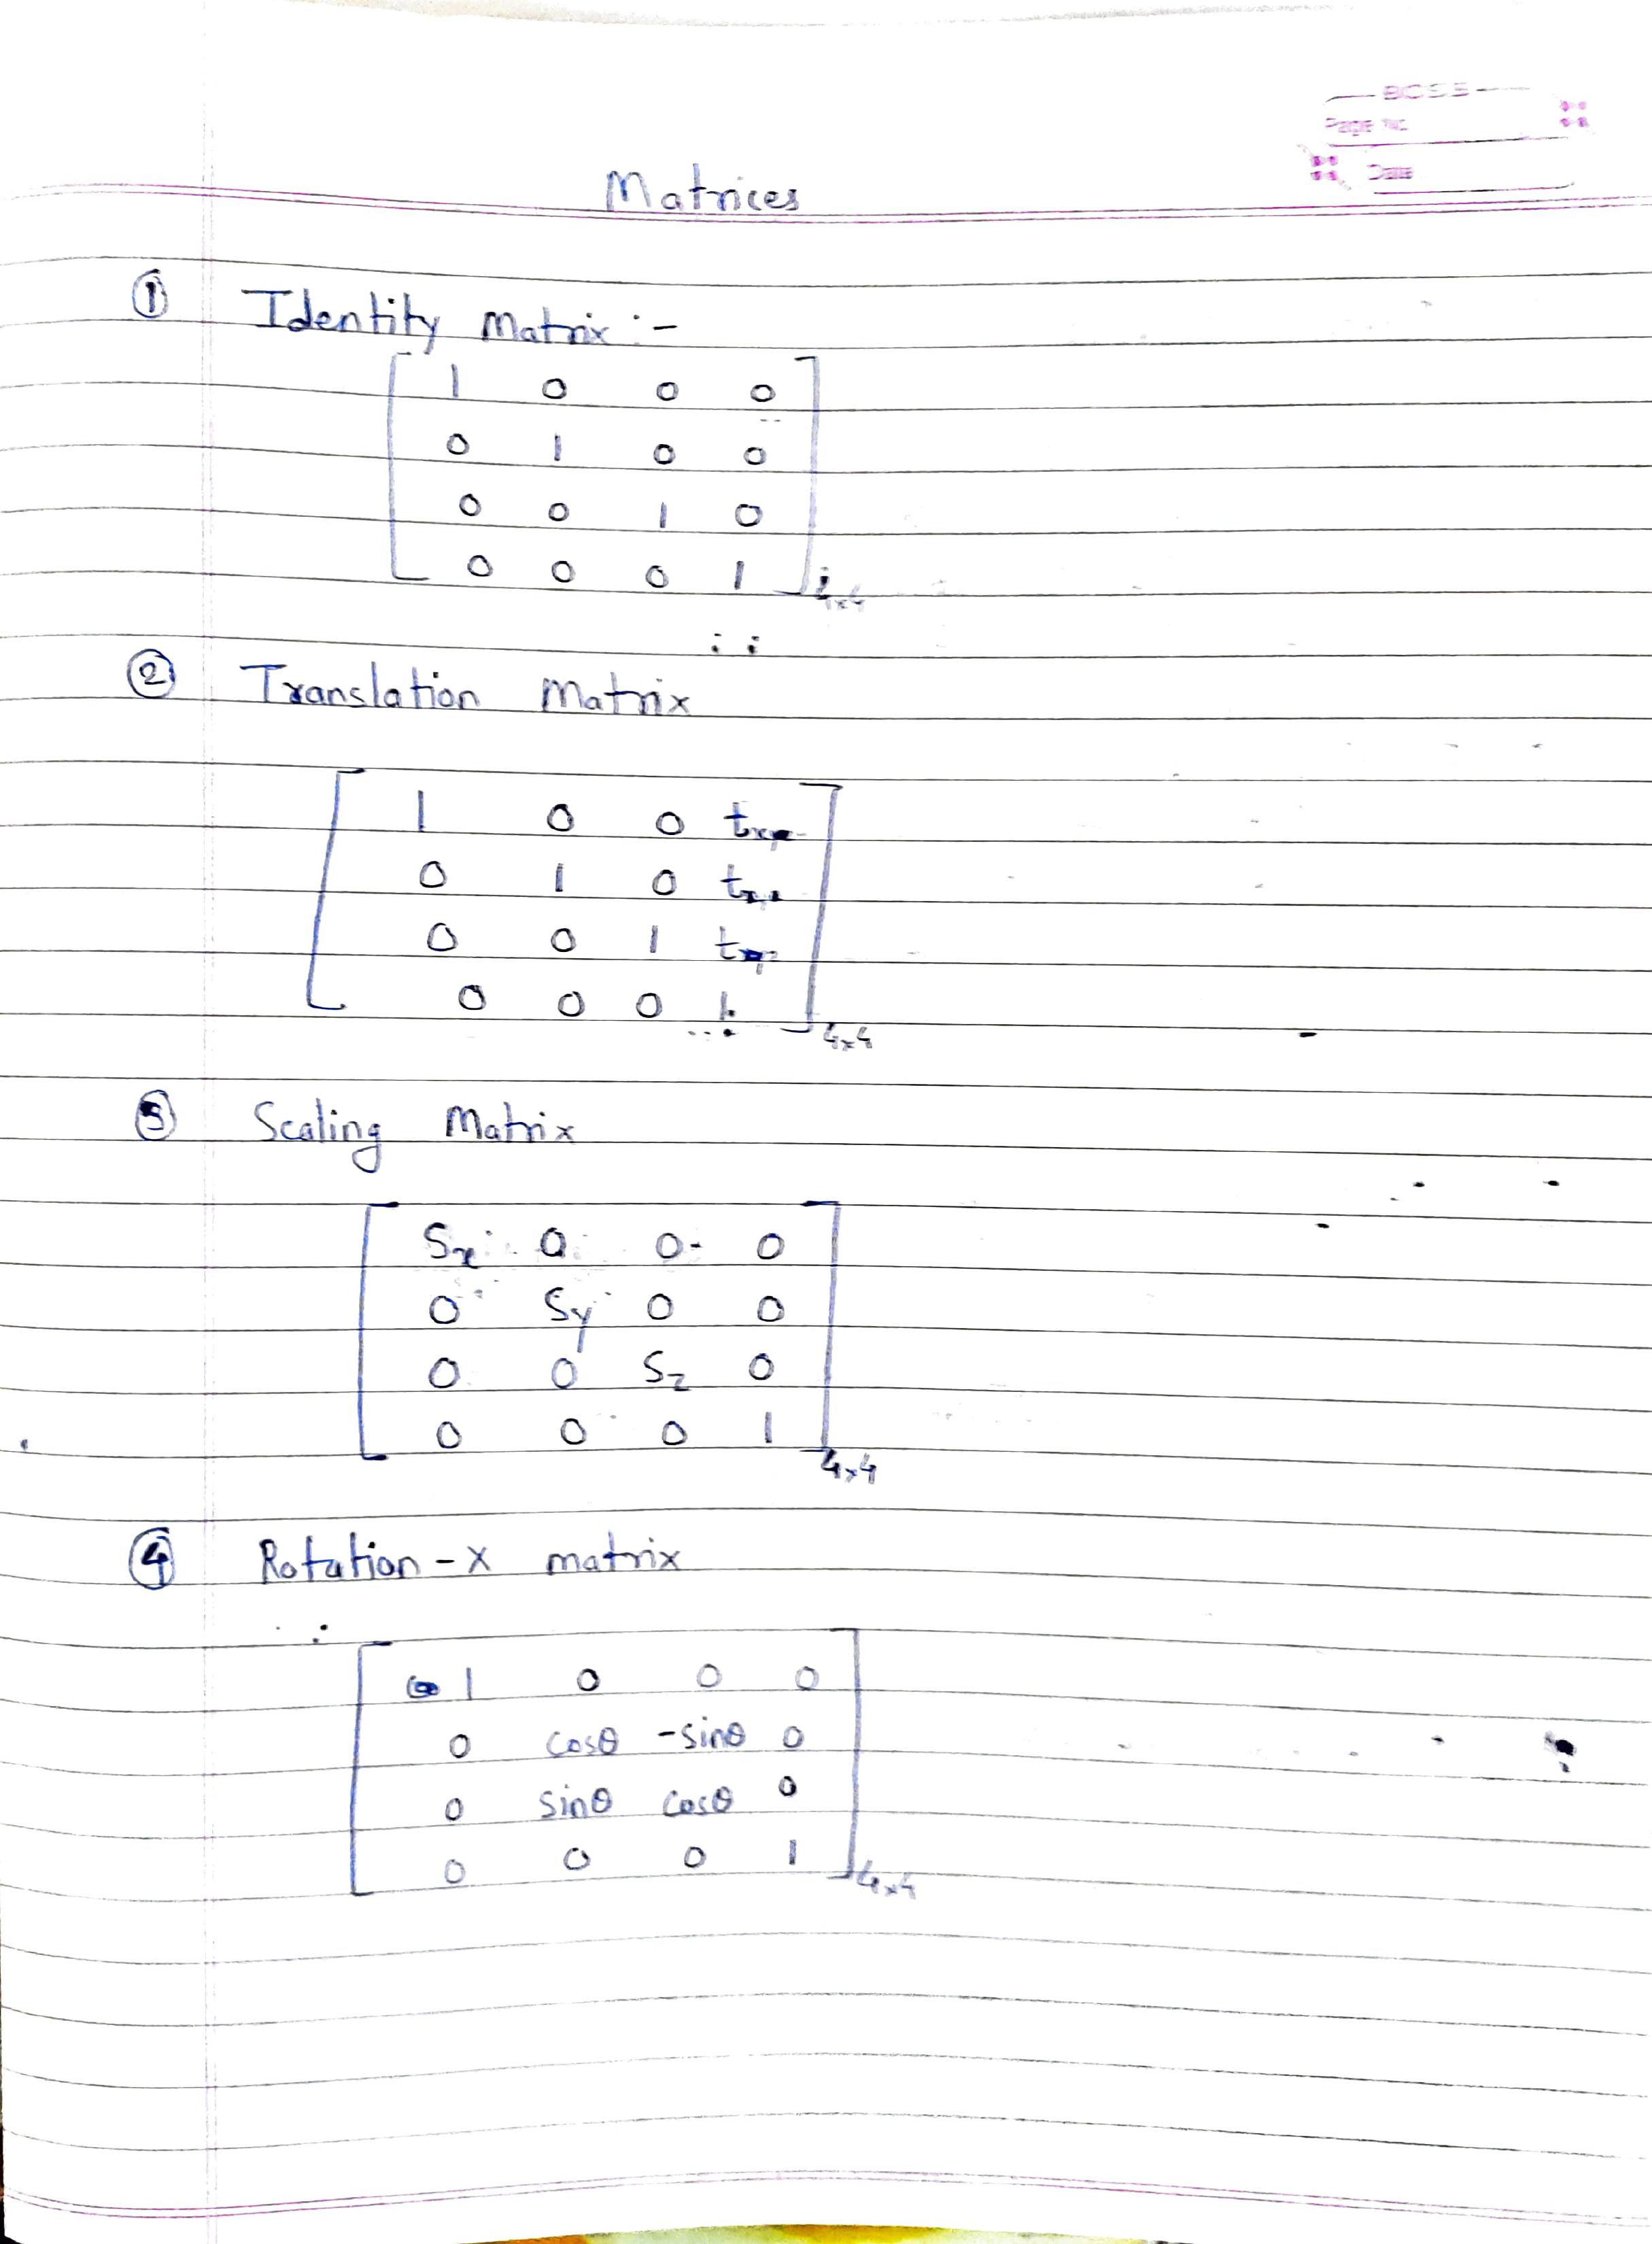 BCSS
Page No.
Date
Matrices
① Identity Matrix :-
1 0 0 0
0 1 0 0
0 0 1 0
0 0 0 1
4x4
② Translation Matrix
1 0 0
0 1 0
0 0 1
0 0 0 1
4x4
③ Scaling Matrix
Sx 0 0 0
0 Sy 0 0
0 0 Sz 0
0 0 0 1
4x4
④ Rotation - X matrix
1 0 0 0
0 cosθ -sinθ 0
0 sinθ cosθ 0
0 0 0 1
4x4